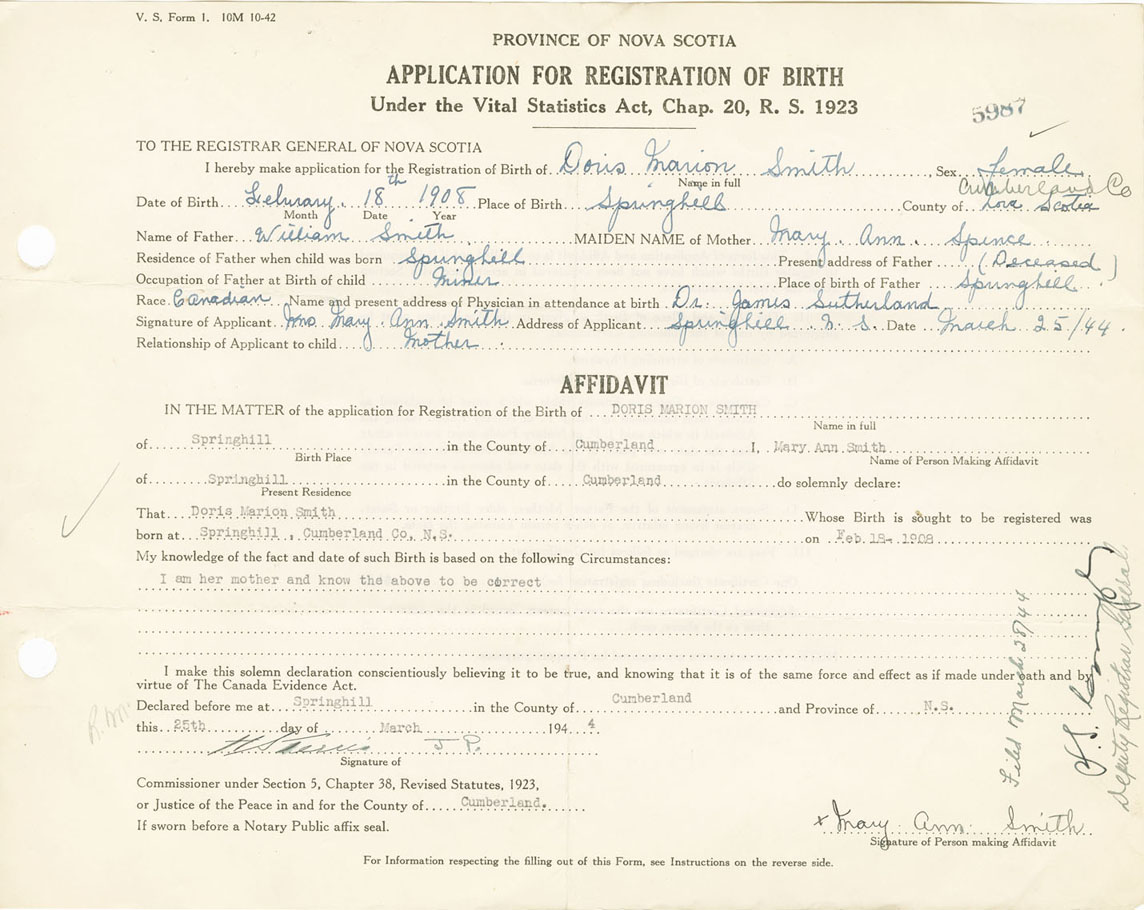 V. S. Form 1. 10M 10-42
PROVINCE OF NOVA SCOTIA
APPLICATION FOR REGISTRATION OF BIRTH
Under the Vital Statistics Act, Chap. 20, R. S. 1923
5987
TO THE REGISTRAR GENERAL OF NOVA SCOTIA
I hereby make application for the Registration of Birth of Doris Marion Smith Sex Female
Name in full
Cumberland Co
Date of Birth February 18th 1908 Place of Birth Springhill County of Nova Scotia
Month Date Year
Name of Father William Smith MAIDEN NAME of Mother Mary Ann Spence
Residence of Father when child was born Springhill Present address of Father (Deceased)
Occupation of Father at Birth of child Miner Place of birth of Father Springhill
Race Canadian Name and present address of Physician in attendance at birth Dr. James Sutherland
Signature of Applicant Mrs Mary Ann Smith Address of Applicant Springhill N. S. Date March 25/44
Relationship of Applicant to child Mother
AFFIDAVIT
IN THE MATTER of the application for Registration of the Birth of DORIS MARION SMITH
Name in full
of Springhill in the County of Cumberland I, Mary Ann Smith
Birth Place Name of Person Making Affidavit
of Springhill in the County of Cumberland do solemnly declare:
Present Residence
That Doris Marion Smith Whose Birth is sought to be registered was
born at Springhill , Cumberland Co, N.S. on Feb 18- 1908
My knowledge of the fact and date of such Birth is based on the following Circumstances:
I am her mother and know thd above to be correct
I make this solemn declaration conscientiously believing it to be true, and knowing that it is of the same force and effect as if made under oath and by
virtue of The Canada Evidence Act.
Declared before me at Springhill in the County of Cumberland and Province of N.S.
this 25th day of March 194 4
J. P.
Signature of
Commissioner under Section 5, Chapter 38, Revised Statutes, 1923,
or Justice of the Peace in and for the County of Cumberland.
If sworn before a Notary Public affix seal.
x Mary Ann Smith
Signature of Person making Affidavit
For Information respecting the filling out of this Form, see Instructions on the reverse side.
Filed March 28/44
Deputy Registrar General